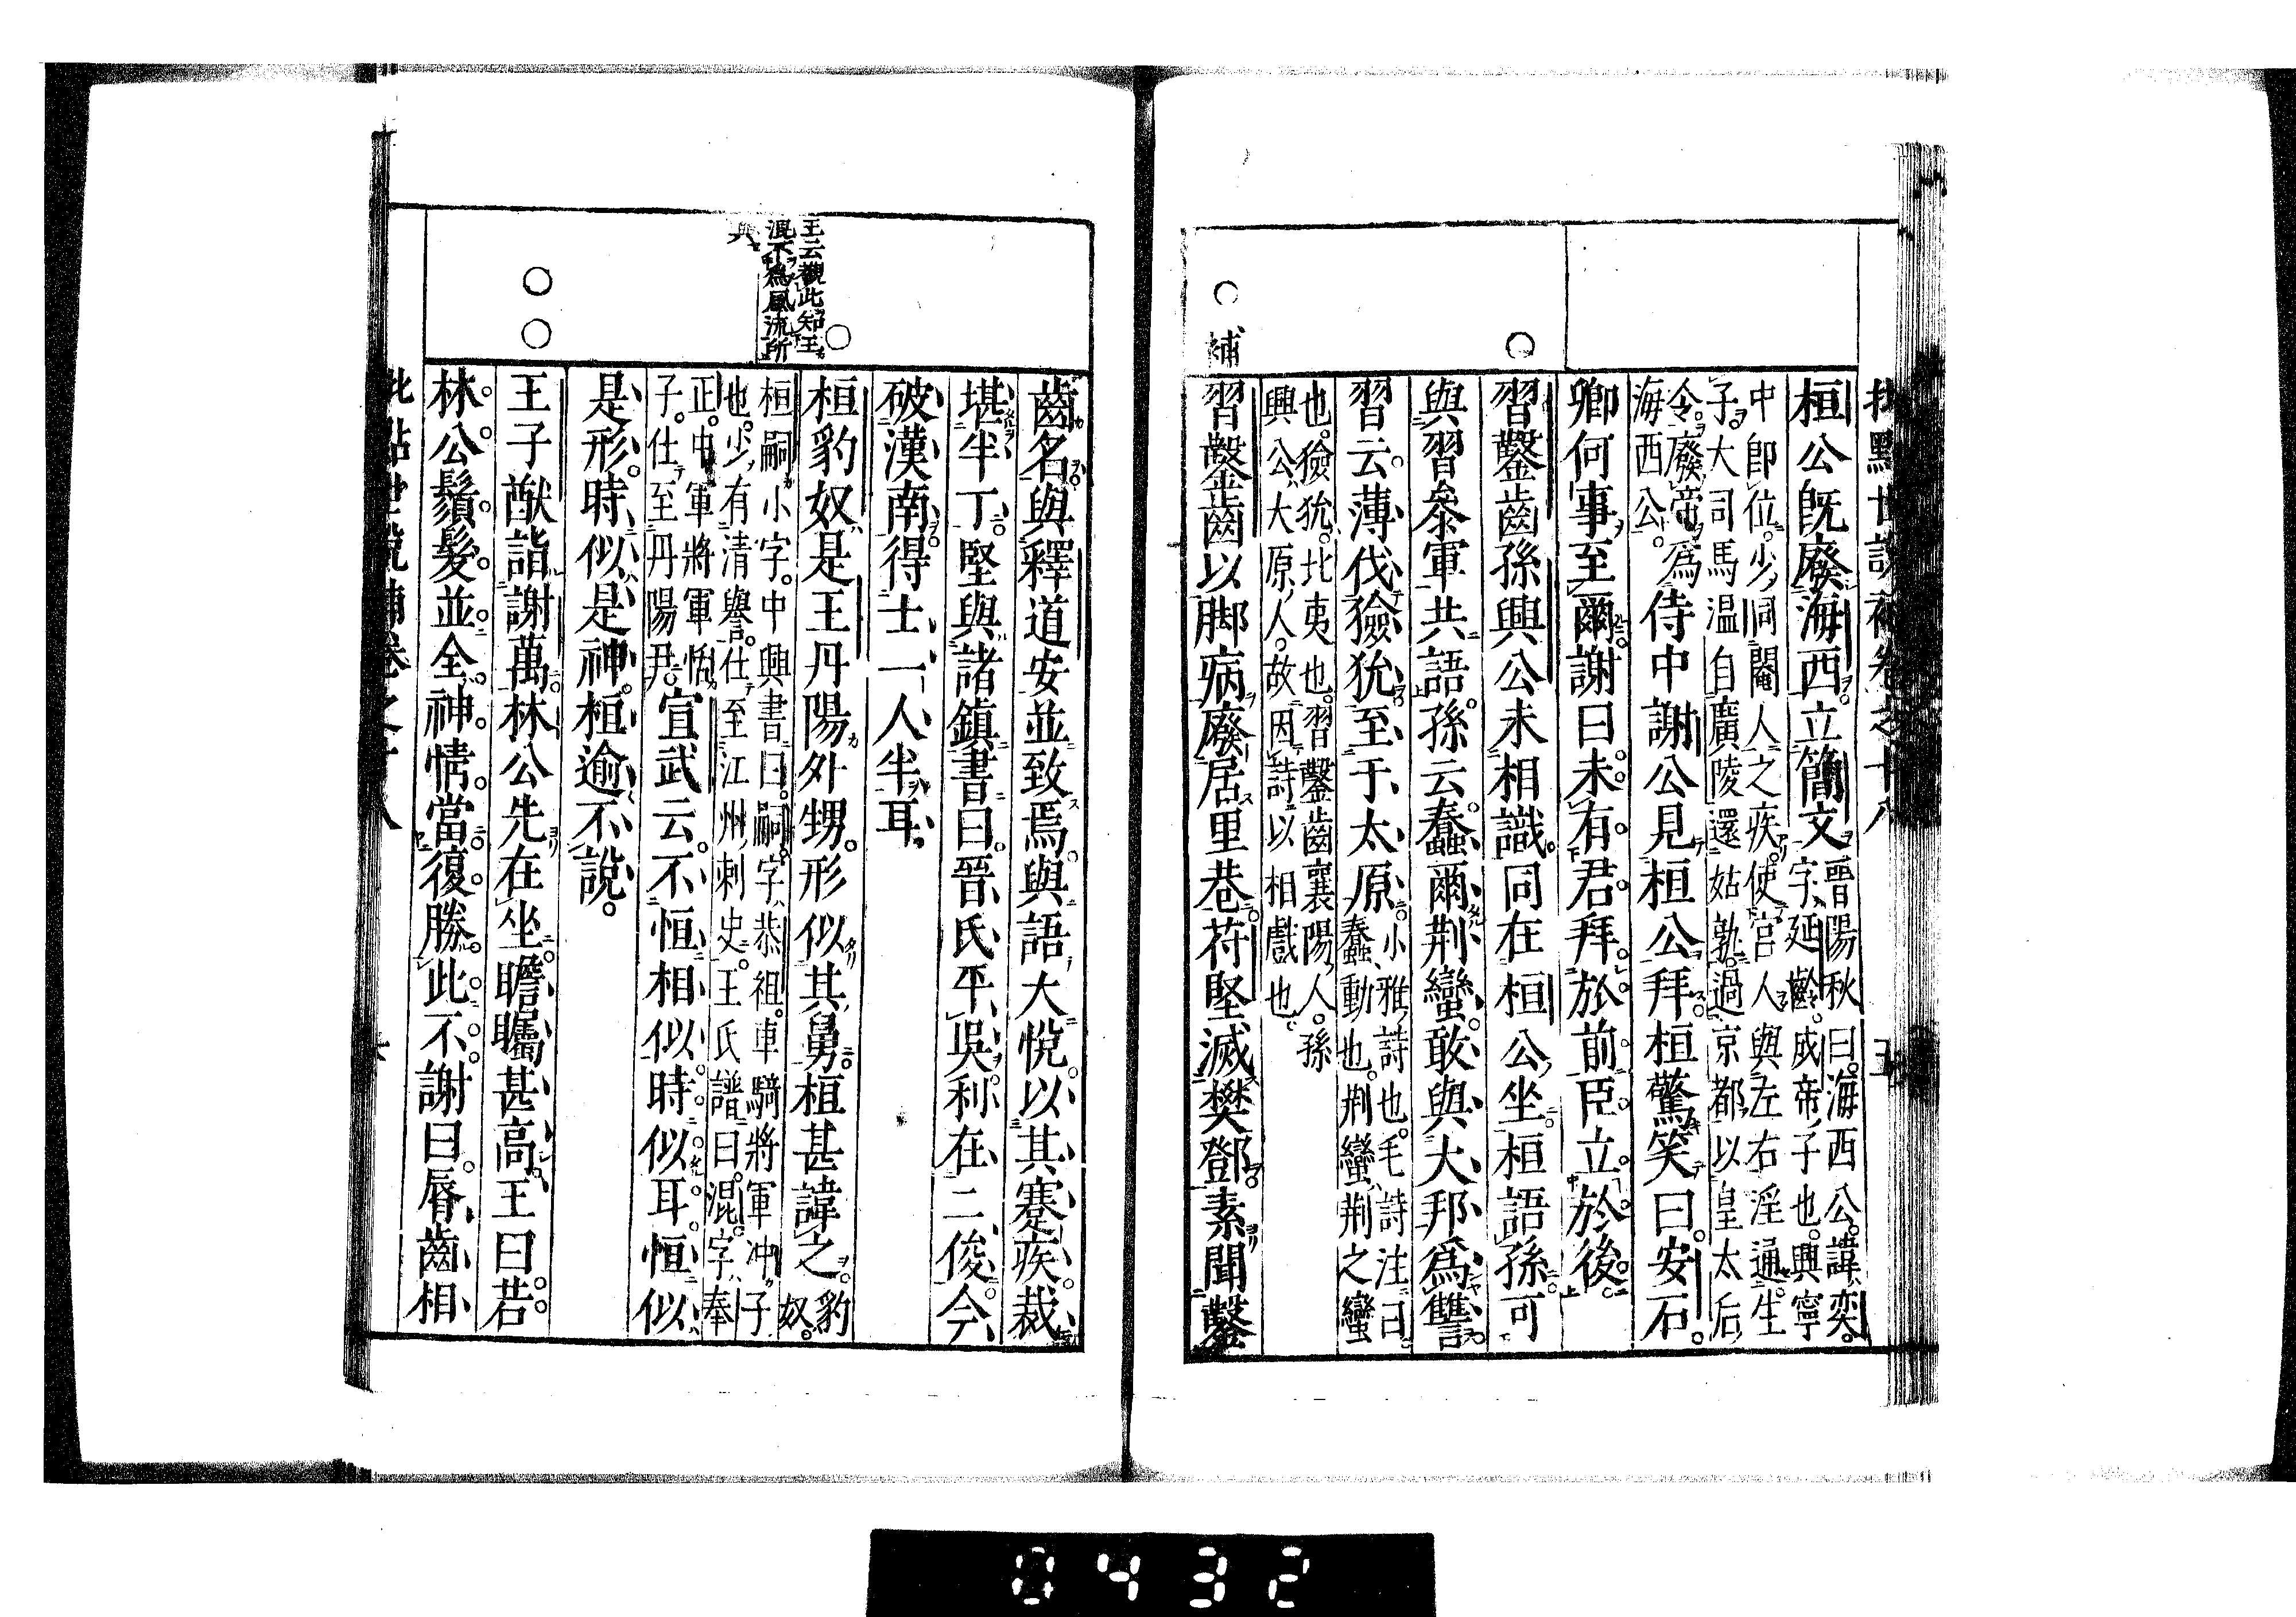 批點世説補卷之十八 五
桓公既廢海西立簡文晉陽秋曰海西公諱奕字延齡成帝子也興寧
中即位少同閹人之疾使宮人與左右淫通生子大司馬温自廣陵還姑孰過京都以皇太后
令廢帝爲海西公侍中謝公見桓公拜桓驚笑曰安石
卿何事至爾謝曰未有君拜於前臣立於後
○
習鑿齒孫興公未相識同在桓公坐桓語孫可
與習參軍共語孫云蠢爾荆蠻敢與大邦爲讐
習云薄伐獫狁至于太原小雅詩也毛詩注曰蠢動也荆蠻荆之蠻
也獫狁北夷也習鑿齒襄陽人孫興公太原人故因詩以相戲也
○補
習鑿齒以脚病廢居里巷苻堅滅樊鄧素聞鑿
齒名與釋道安並致焉與語大悅以其蹇疾裁
堪半丁堅與諸鎮書曰晉氏平吳利在二俊今
破漢南得士一人半耳
○
王云觀此知王
混不爲風流所
與
桓豹奴是王丹陽外甥形似其舅桓甚諱之豹奴
桓嗣小字中興書曰嗣字恭祖車騎將軍冲子也少有清譽仕至江州刺史王氏譜曰混字奉
正中軍將軍恬子仕至丹陽尹宣武云不恒相似時似耳恒似
是形時似是神桓逾不說
○
○
王子猷詣謝萬林公先在坐瞻矚甚高王曰若
林公鬚髮並全神情當復勝此不謝曰脣齒相
批點世說補卷之十八 六
0432